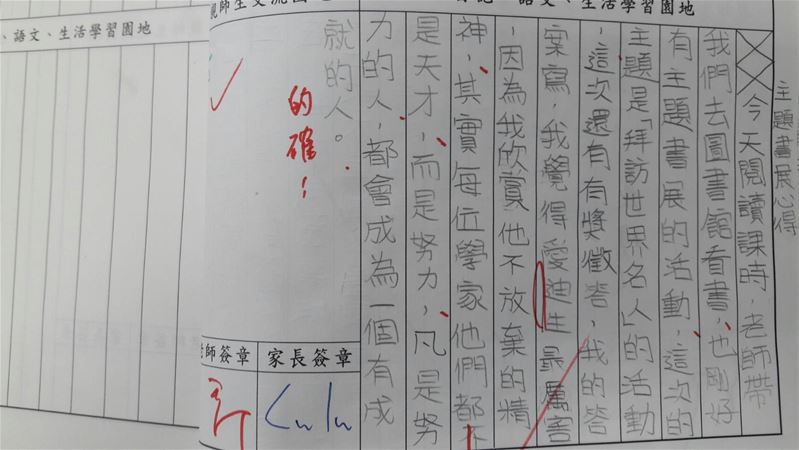 主題書展心得
今天閱讀課時，老師帶
我們去圖書館看書，也剛好
有主題書展的活動，這次的
主題是「拜訪世界名人」的活動
，這次還有有獎徵答，我的答
案寫，我覺得愛迪生最厲害
，因為我欣賞他不放棄的精
神，其實每位學家他們都不
是天才，而是努力，凡是努
力的人，都會成為一個有成
就的人。
的確！
親師生交流園地
師簽章
家長簽章
Lulu
、語文、生活學習園地
、語文、生活學習園地